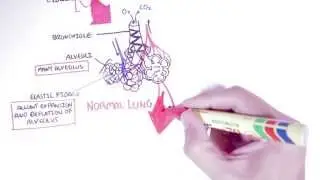 O₂ CO₂
BRONCHIOLE
ALVEOLI
MANY ALVEOLUS
ELASTIC
ALLOWS EXPANSION
AND DEFLATION OF
ALVEOLUS
NORMAL LUNG